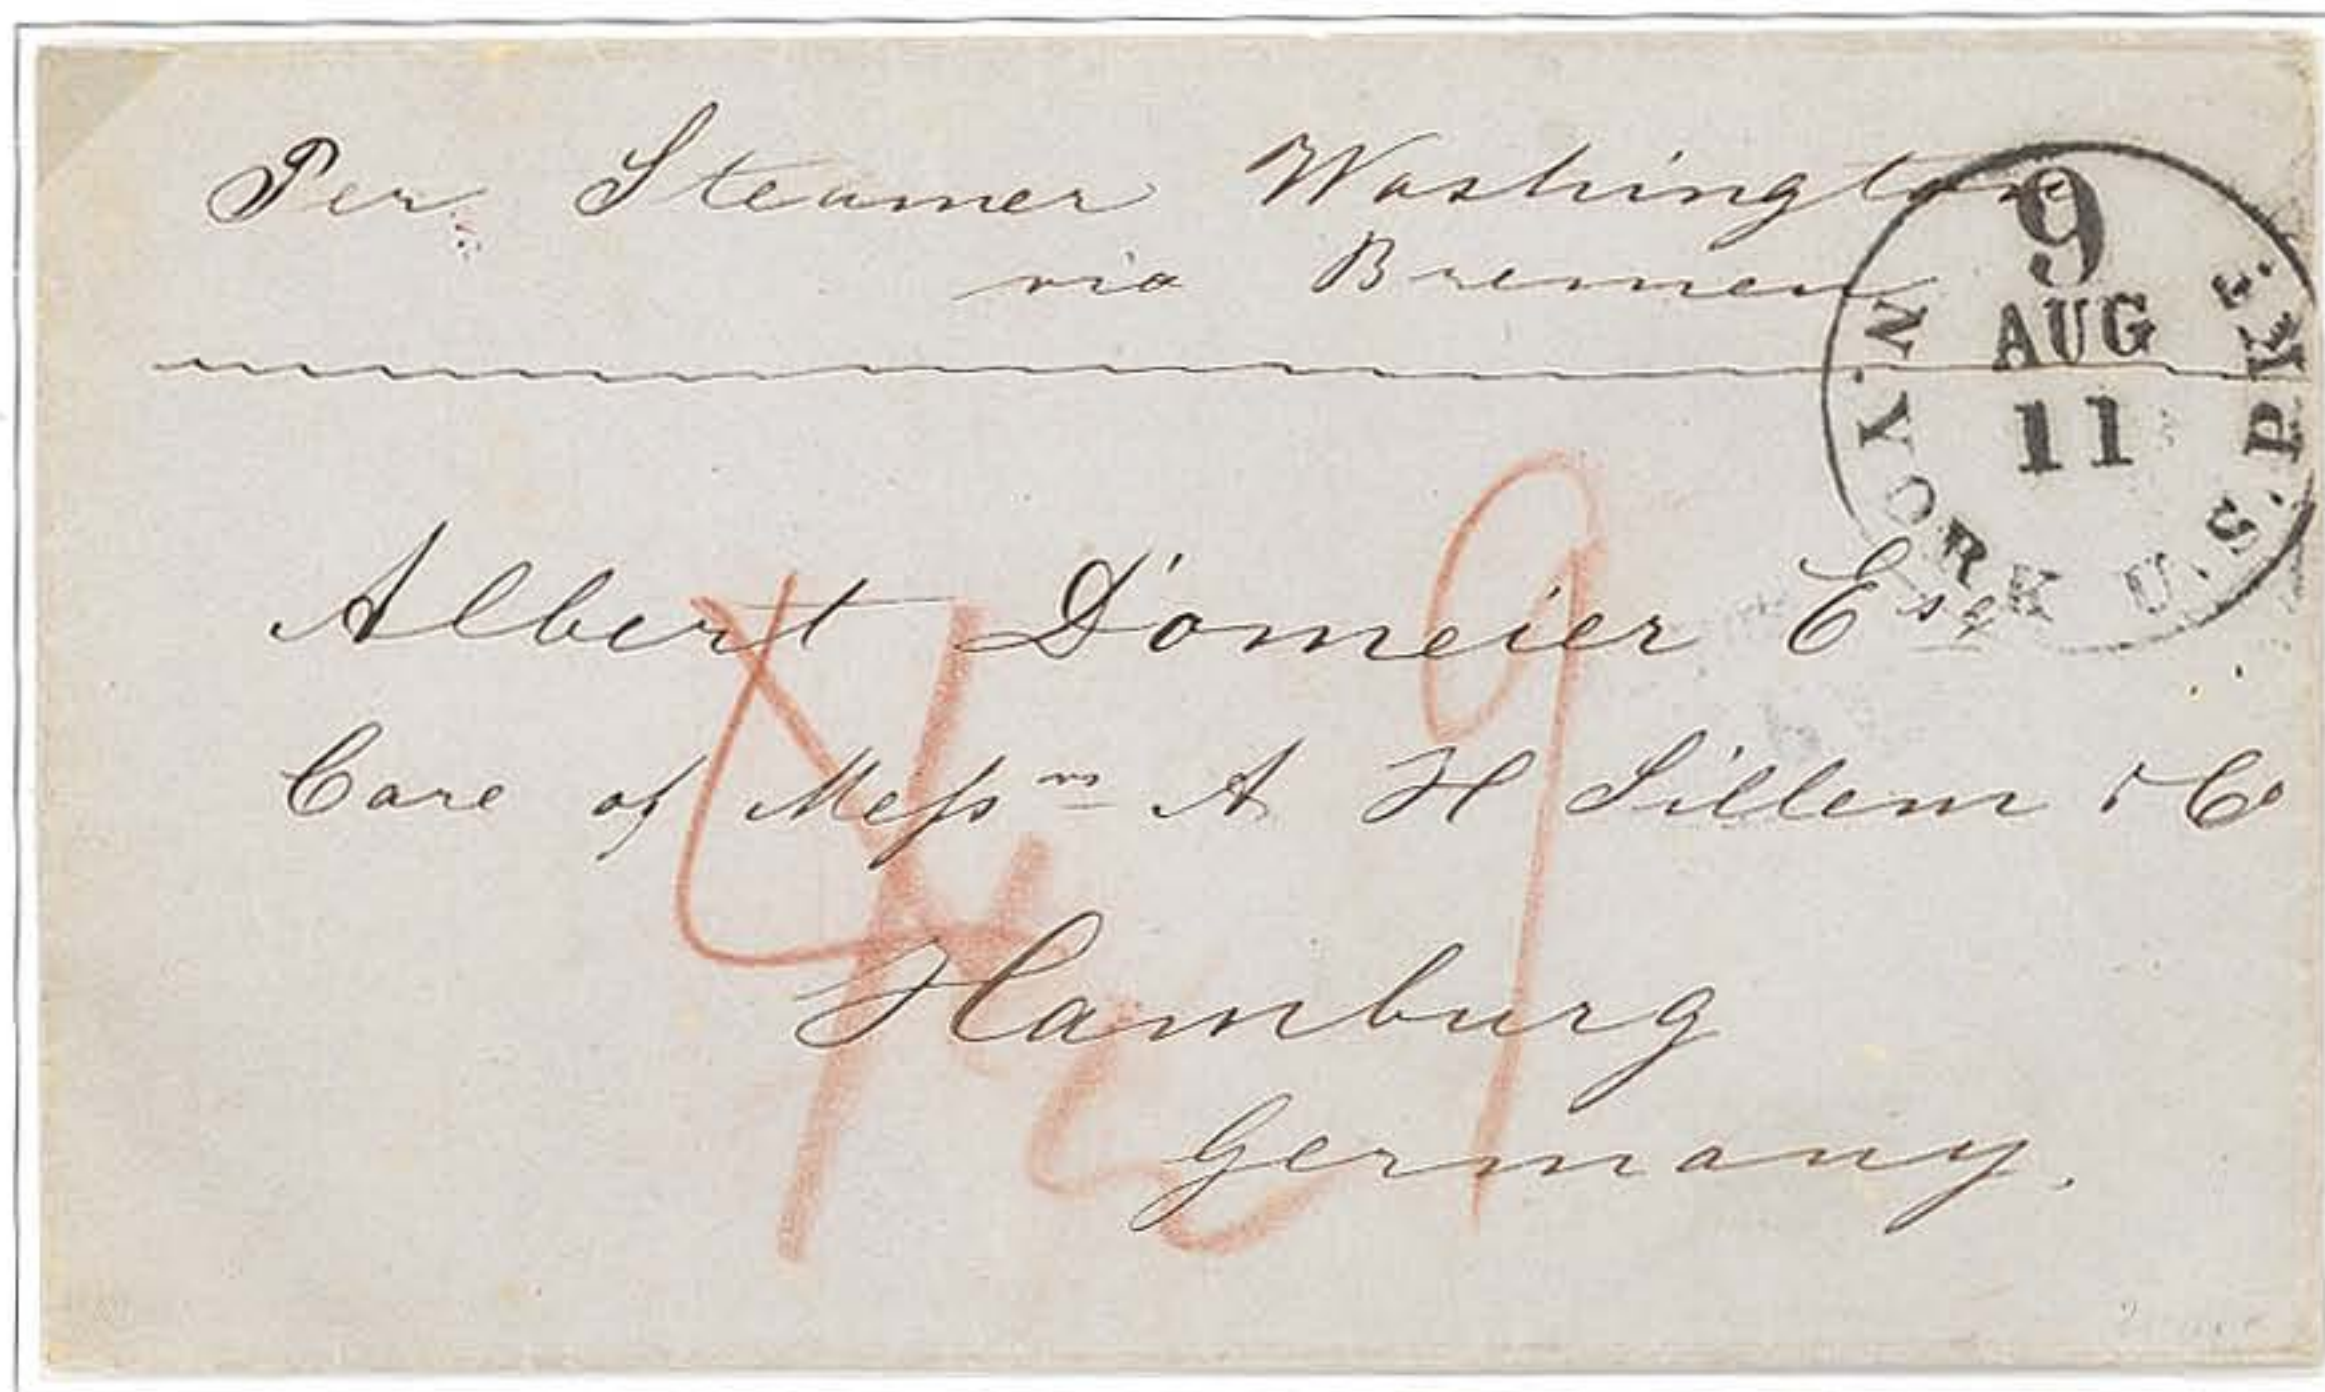 Per Steamer Washington
via Bremen
9
AUG
11
N. YORK U.S. PKE.
Albert Domeier Esq
Care of Messrs A H Sillem & Co
Hamburg
Germany.
4½ 9